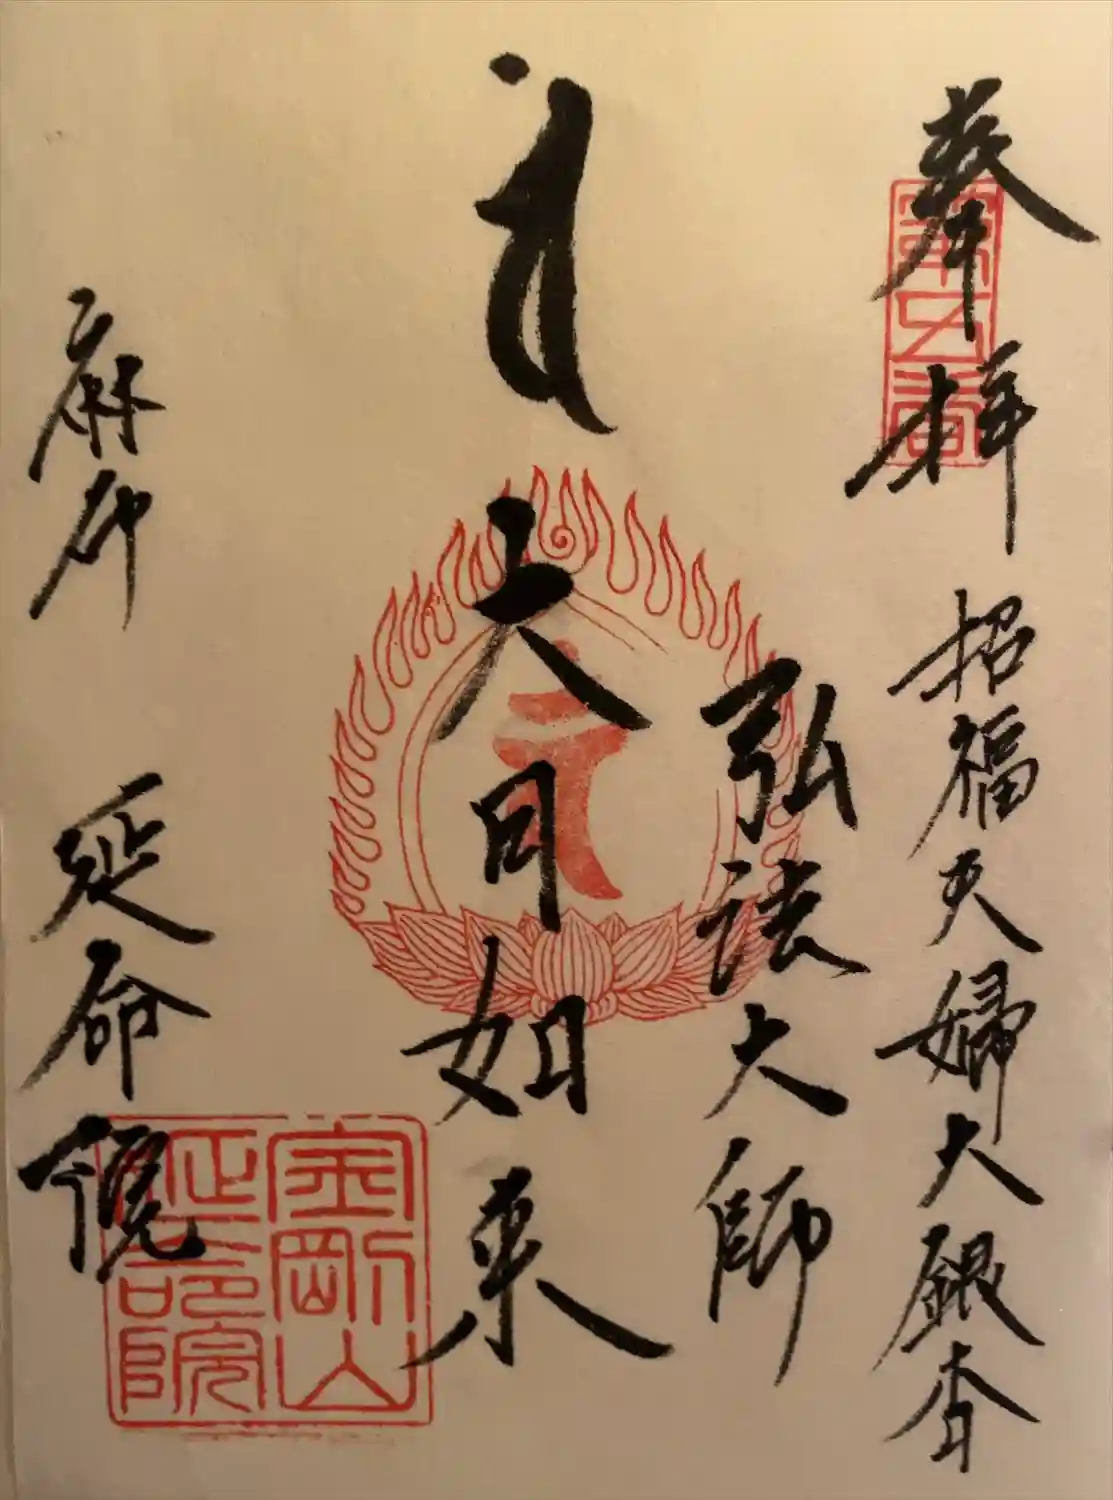 奉拝 招福夫婦大銀杏
第五番
弘法大師
大日如来
麻布 延命院
金剛山
延命院